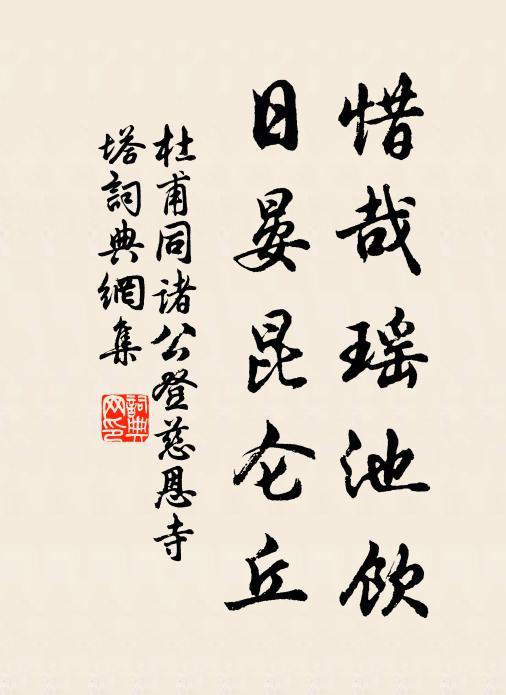 惜哉瑶池飲
日晏昆仑丘
杜甫同諸公登慈恩寺
塔詞典網集
詞典
网印